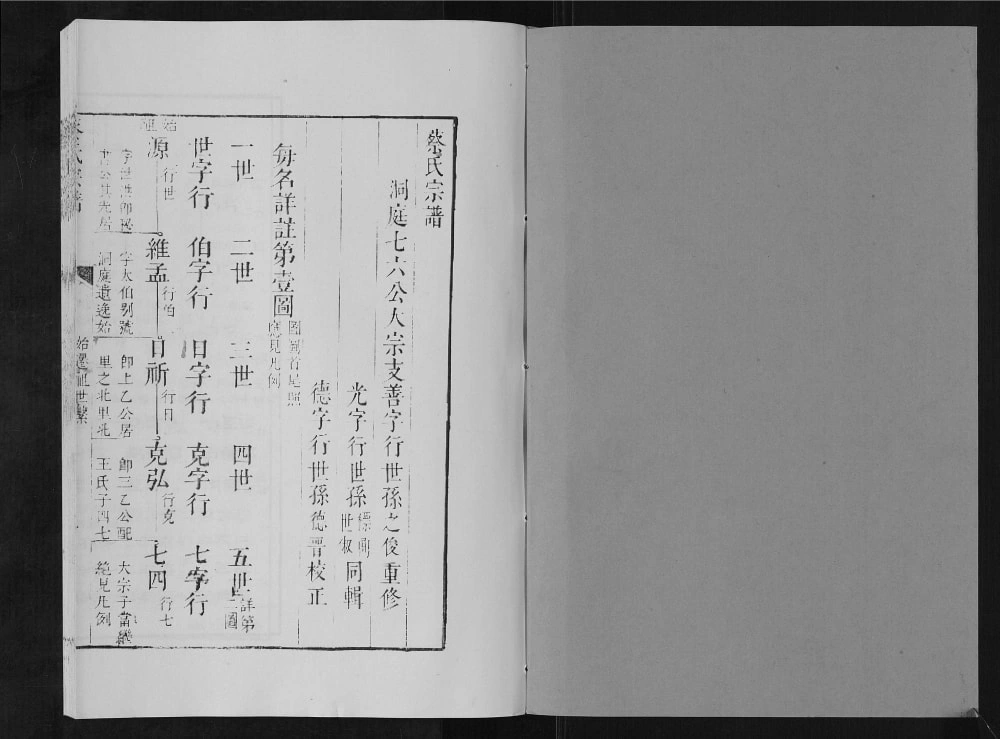 蔡氏宗譜
洞庭七六公大宗支善字行世孫之俊重修
光字行世孫標 世俶同輯
德字行世孫德晋校正
每名詳註第壹圖圖首尾照應見凡例
一世 二世 三世 四世 五世詳第二圖
世字行 伯字行 日字行 克字行 七字行
始
源行世 維孟行伯 日祈行日 克弘行克 七四行七
字世 字太伯别號 即上乙公居 即三乙公配 大宗子當繼
居 洞庭遺逸始 里之北里 王氏子四七 絶見凡例
始遷世繫